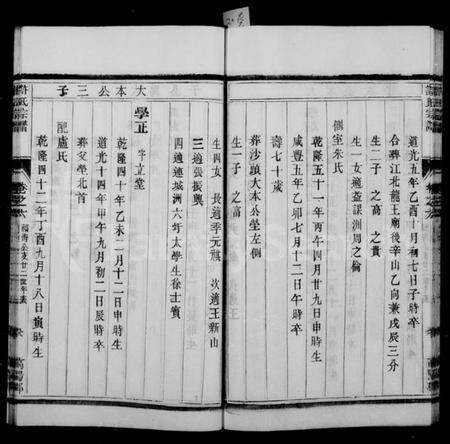 道光五年乙酉十月初七日子時卒
合葬江北龍王廟後辛山乙向兼戌辰三分
生二子 之高 之貴
生一女適益課洲周之倫
側室朱氏
乾隆五十一年丙午四月廿九日申時生
咸豐五年乙卯七月十二日午時卒
壽七十歲
葬沙頭大本公塋左側
生一子 之高
生四女 長適季元祺 次適王新山
三適張振興
四適連城洲六圩太學生徐士賓
大本公三子
學正 字立堂
乾隆四十年乙未二月十二日申時生
道光十四年甲午九月初二日辰時卒
葬父塋北首
配盧氏
乾隆四十二年丁酉九月十八日寅時生
卷之六
卷之六
氏宗譜